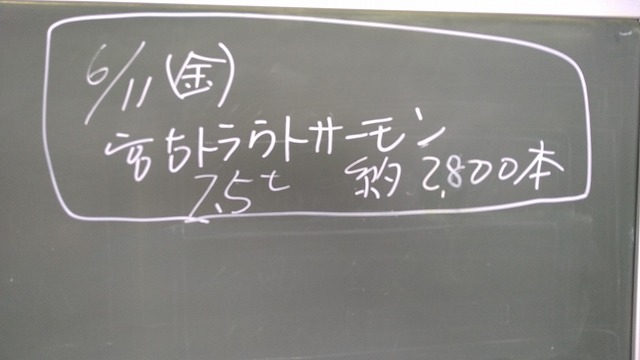 6/11(金)
宮古トラウトサーモン
7.5t 約2,800本